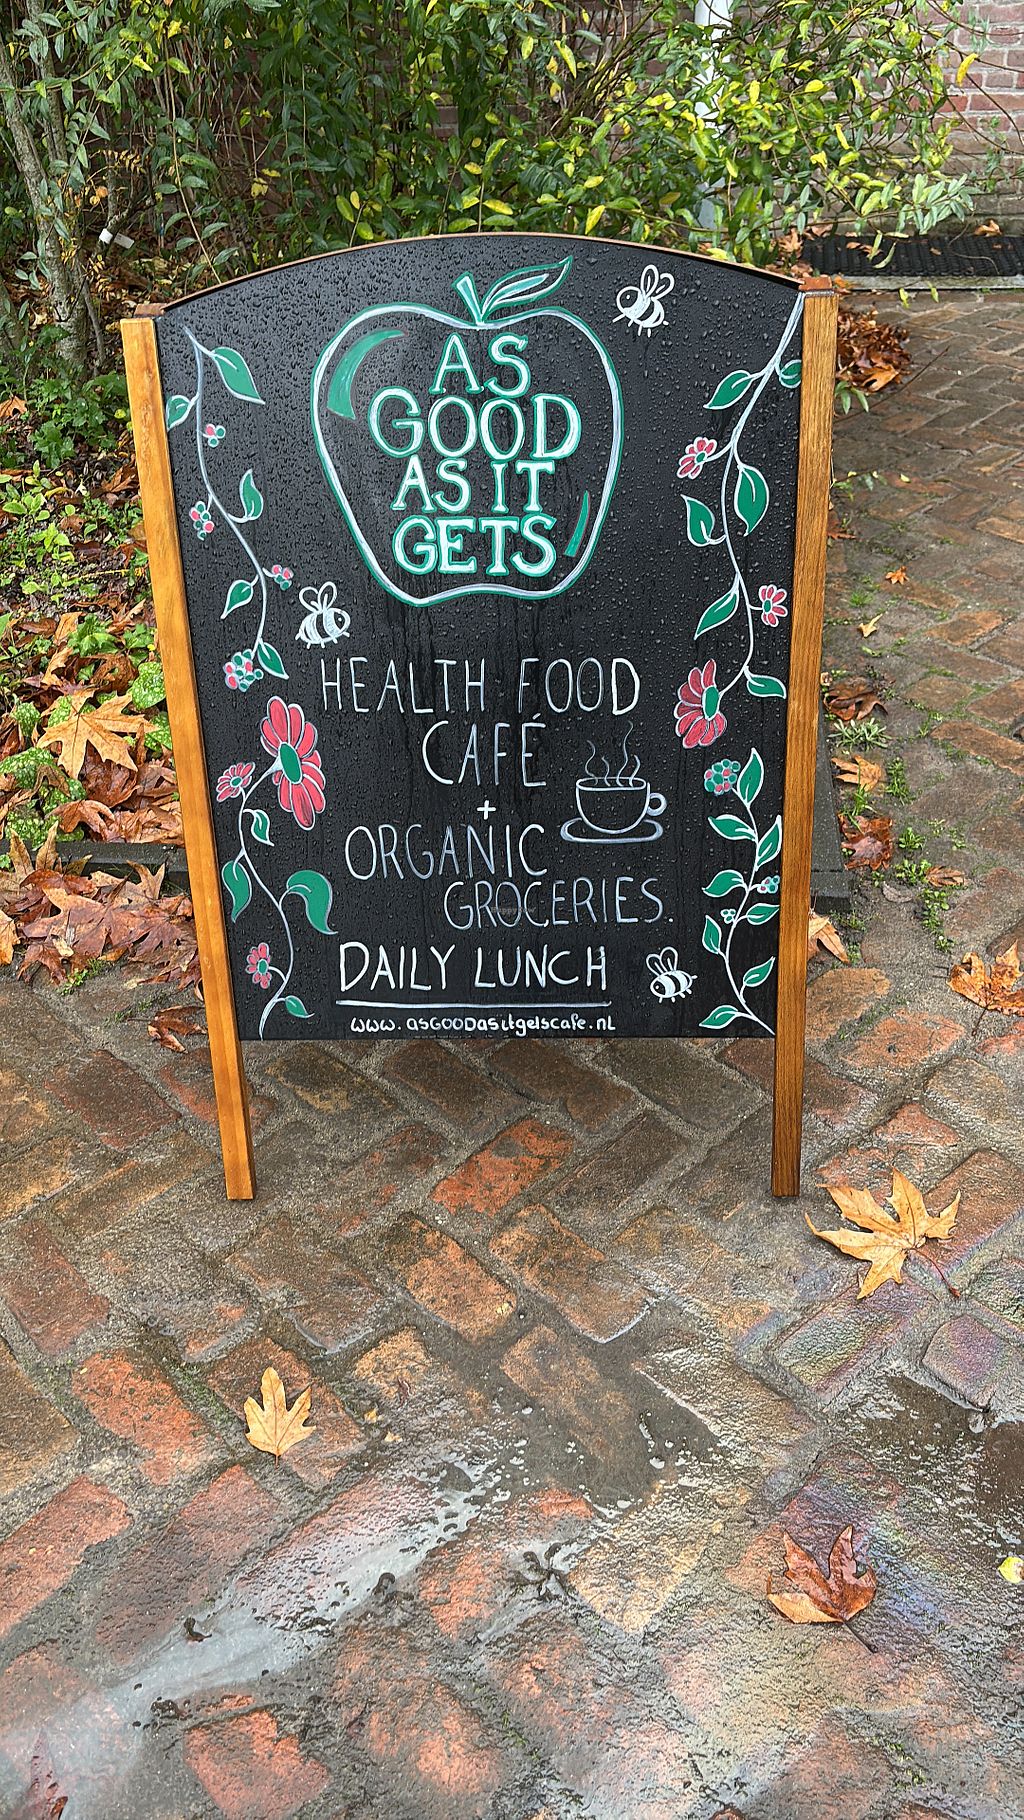 AS
GOOD
AS IT
GETS
HEALTH FOOD
CAFÉ
+
ORGANIC
GROCERIES.
DAILY LUNCH
www.asGOODasitgetscafe.nl